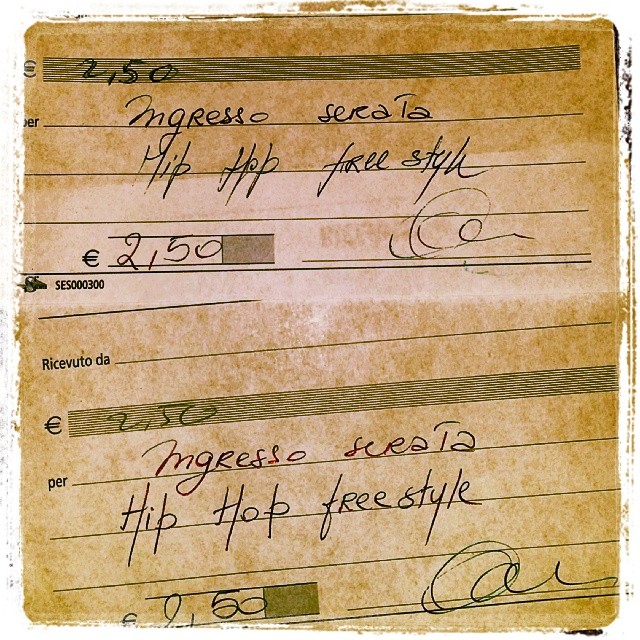 € 2,50
per Ingresso serata
Hip Hop freestyle
€ 2,50
SES000300
Ricevuto da
€ 2,50
per Ingresso serata
Hip Hop freestyle
€ 2,50